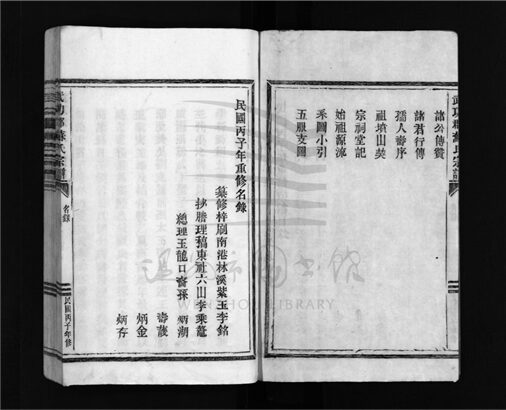 武功郡蘇氏宗譜
諸公傳贊
諸君行傳
孺人壽序
祖墳山契
宗祠堂記
始祖源流
系圖小引
五服支圖
民國丙子年重修名錄
纂修梓刷南港林溪紫玉李銘
抄謄理稿東社六山李乘鼇
總理玉龍口裔孫 炳湖
壽護
炳金
炳存
武功郡蘇氏宗譜
名錄
民國丙子年修
LIBRARY